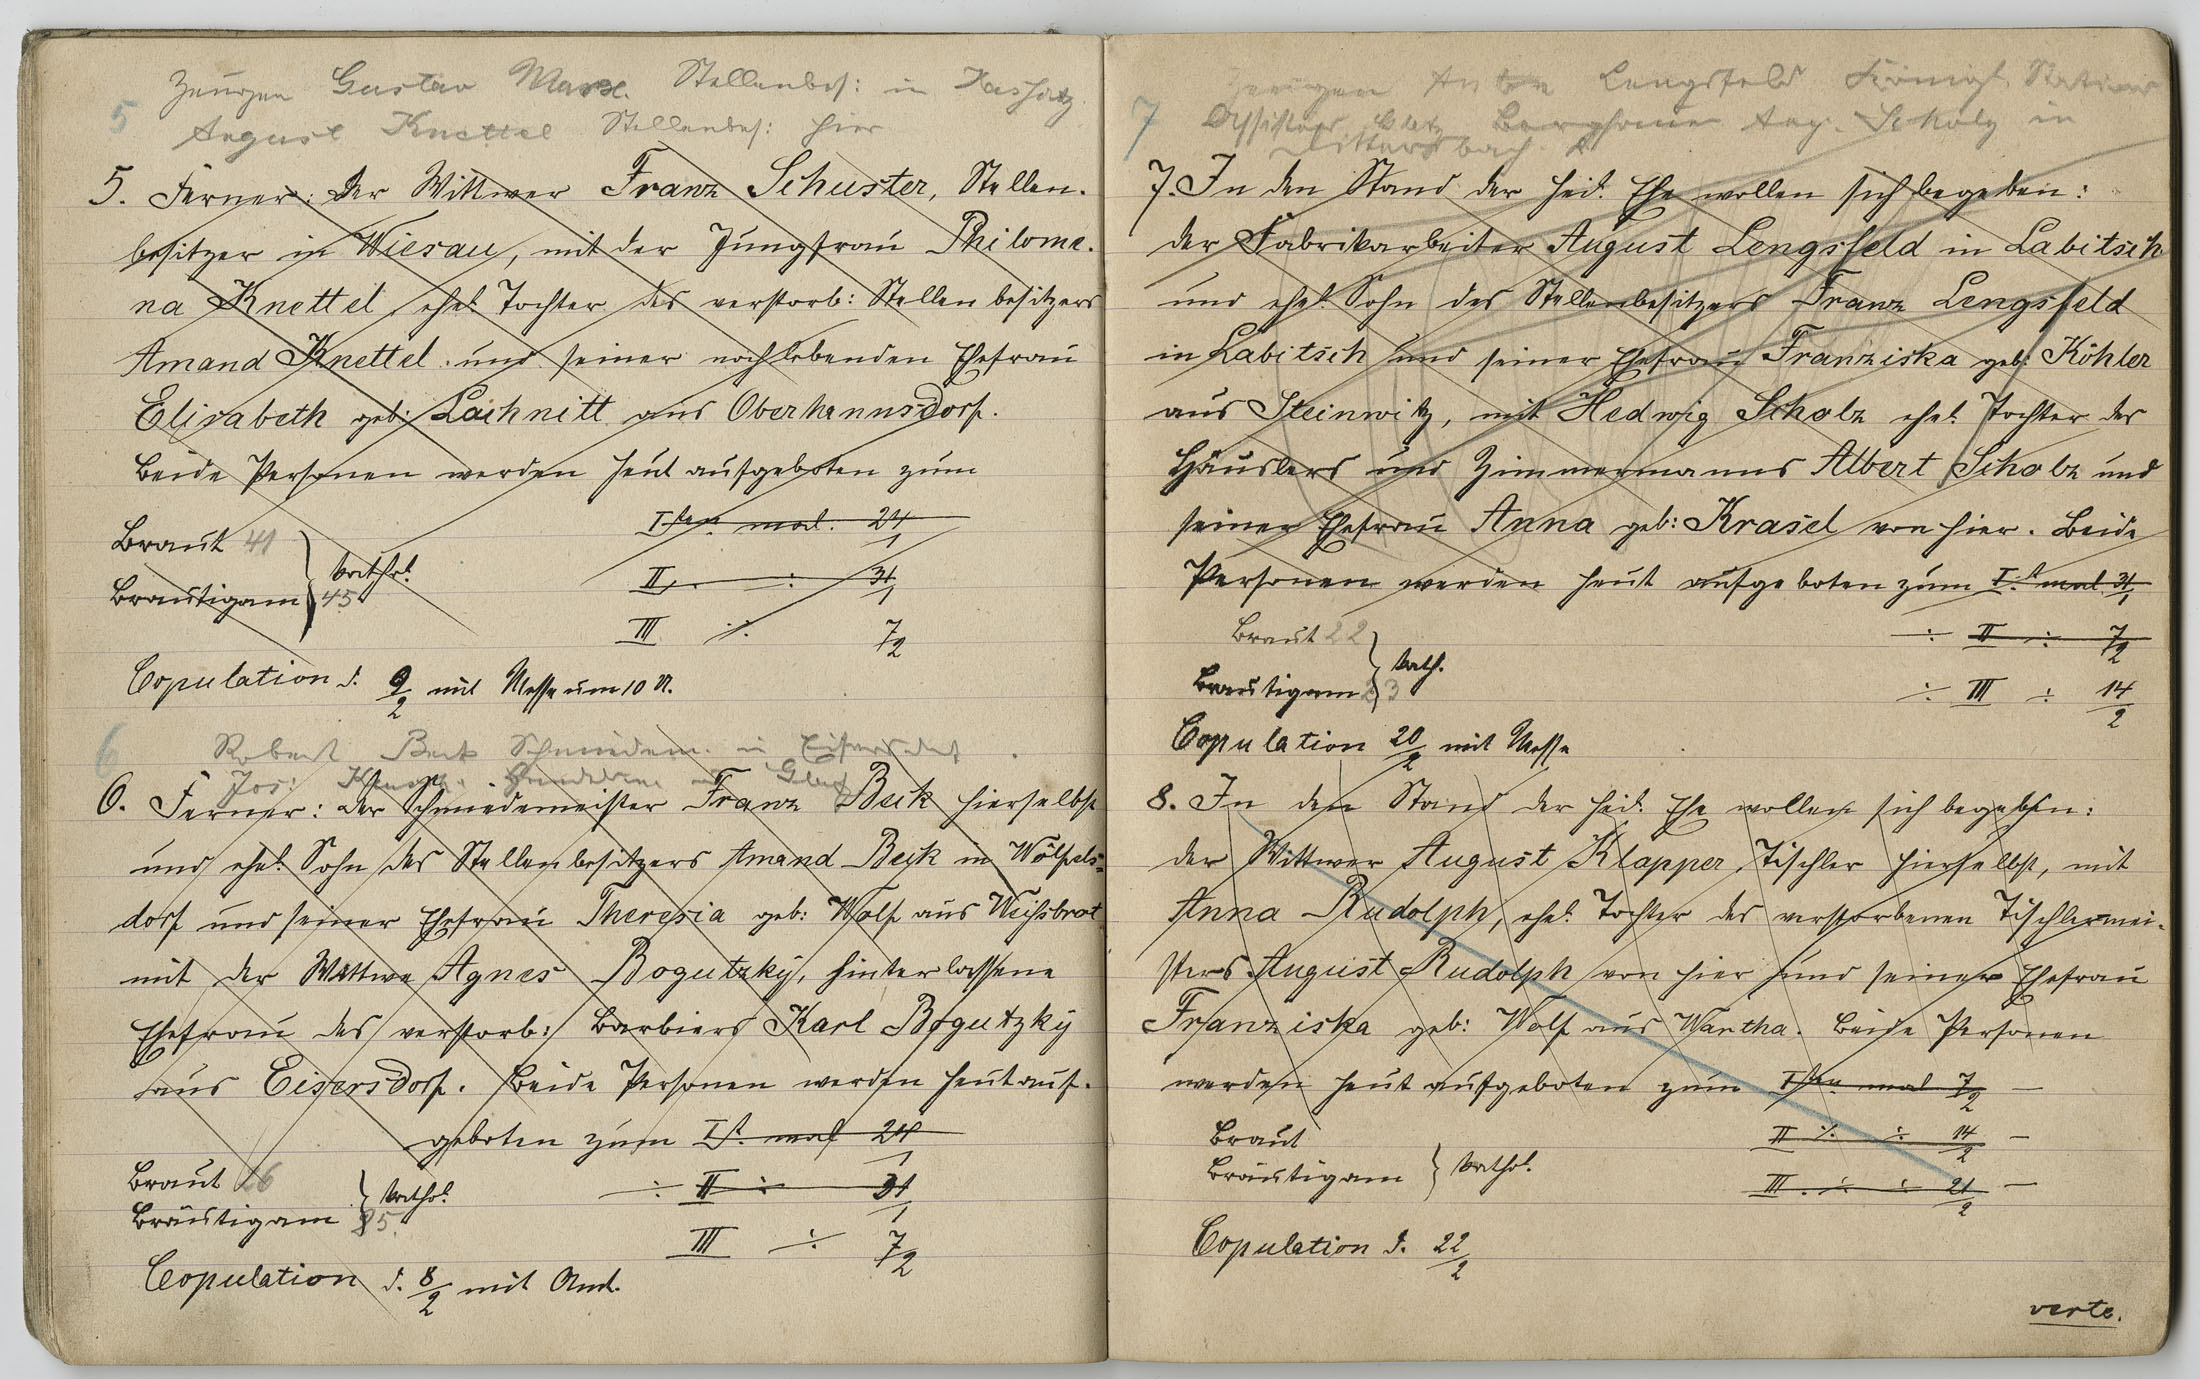 Zeugen Gustav Marx. Stellenbes: in
5 August Knettel Stellenbes: hier
5. Ferner: Der Wittwer Franz Schuster, Stellen-
besitzer in Wiesau, mit der Jungfrau Philome-
na Knettel, ehel. Tochter des verstorb: Stellenbesitzers
Amand Knettel und seiner nochlebenden Ehefrau
Elisabeth geb: Lachnitt aus Oberhannsdorf.
Beide Personen werden heut aufgeboten zum
Iten mal. 24/1
Braut 41
II ÷ 31/1
Bräutigam 45 } kathol.
III ÷ 7/2
Copulation d. 9/2 mit Messe um 10 U.
6 Robert Beck Schmiedem. in Eisersdorf
Jos:
6. Ferner: Der Schmiedemeister Franz Beck hierselbst
und ehel. Sohn des Stellenbesitzers Amand Beck in Wölfels-
dorf und seiner Ehefrau Theresia geb: Wolf aus Weißbrot
mit der Wittwe Agnes Bogutzky, hinterlassene
Ehefrau des verstorb: Barbiers Karl Bogutzky
aus Eisersdorf. Beide Personen werden heut auf-
geboten zum I.t mal 24/1
Braut 26
÷ II ÷ 31/1
Bräutigam 35 } kathol.
III ÷ 7/2
Copulation d. 8/2 mit Amt.
Zeugen Lengsfeld Königl. Stations
7 Assistent Glatz Aug. Scholz in
7. In den Stand der heil. Ehe wollen sich begeben:
der Fabrikarbeiter August Lengsfeld in Labitsch
und ehel. Sohn des Stellenbesitzers Franz Lengsfeld
in Labitsch und seiner Ehefrau Franziska geb: Köhler
aus Steinwitz, mit Hedwig Scholz ehel. Tochter des
Häuslers und Zimmermanns Albert Scholz und
seiner Ehefrau Anna geb: Krasel von hier. Beide
Personen werden heut aufgeboten zum I.t mal 31/1
Braut 22
÷ II ÷ 7/2
Bräutigam 23 } kath.
÷ III ÷ 14/2
Copulation 20/2 mit Messe
8. In den Stand der heil. Ehe wollen sich begeben:
der Wittwer August Klapper, Tischler hierselbst, mit
Anna Rudolph, ehel. Tochter des verstorbenen Tischlermei-
sters August Rudolph von hier und seiner Ehefrau
Franziska geb: Wolf aus Wartha. Beide Personen
werden heut aufgeboten zum Iten mal 7/2 —
Braut
II ÷ ÷ 14/2 —
Bräutigam } kathol.
III ÷ ÷ 21/2 —
Copulation d. 22/2
verte.